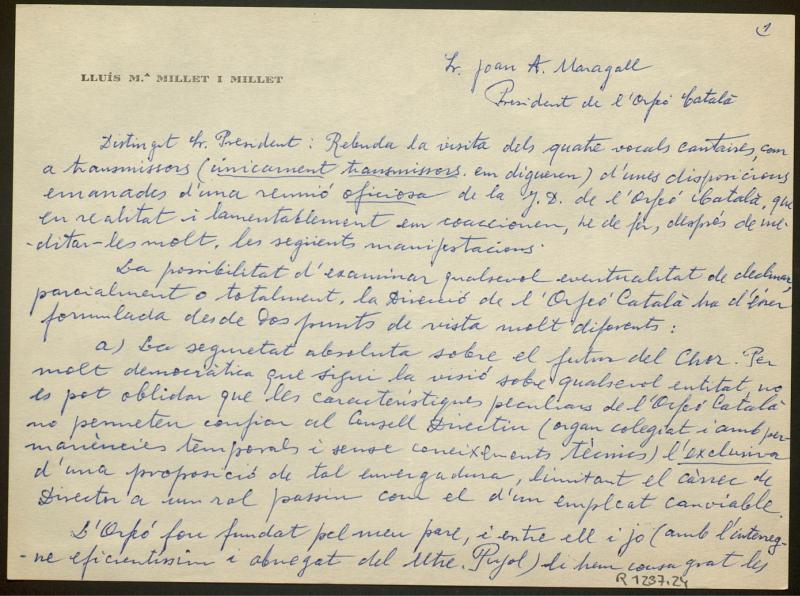 1
LLUÍS M.ª MILLET I MILLET
Sr. Joan A. Maragall
President de l'Orfeó Català
Distingit Sr. President: Rebuda la visita dels quatre vocals cantaires, com
a transmissors (únicament transmissors em digueren) d'unes disposicions
emanades d'una reunió oficiosa de la J.D. de l'Orfeó Català, que
en realitat i lamentablement em coaccionen, he de fer, després de me-
-ditar-les molt, les següents manifestacions.
La possibilitat d'examinar qualsevol eventualitat de declinar,
parcialment o totalment, la Direcció de l'Orfeó Català ha d'ésser
formulada desde dos punts de vista molt diferents:
a) La seguretat absoluta sobre el futur del Chor. Per
molt democràtica que sigui la visió sobre qualsevol entitat, no
es pot oblidar que les característiques peculiars de l'Orfeó Català
no permeten confiar al Consell Directiu (organ colegiat i amb per-
manències temporals i sense coneixements tècnics) l'exclusiva
d'una proposició de tal envergadura, limitant el càrrec de
Director a un rol passiu com el d'un empleat canviable.
L'Orfeó fou fundat pel meu pare, i entre ell i jo (amb l'interreg-
-ne eficientíssim i abnegat del Mtre. Pujol) li hem consagrat les
R 1237.24